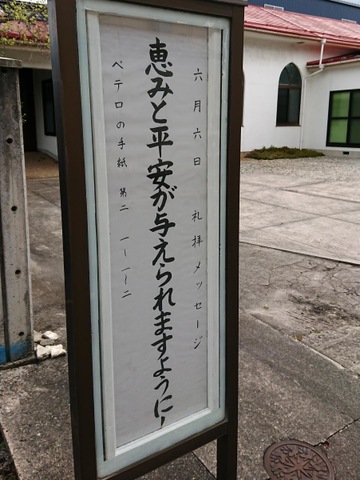 六月六日 礼拝メッセージ
恵みと平安が与えられますように!
ペテロの手紙 第二 一・一~二